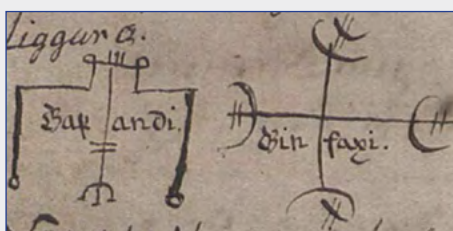 liggur a.
Gap andi. Gin faxi.